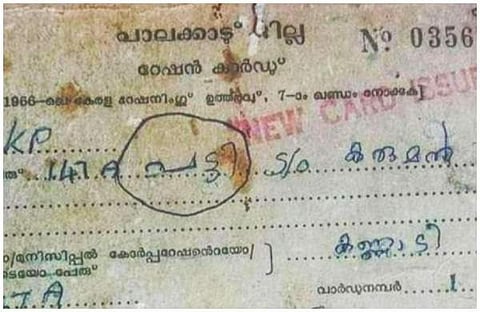 പാലക്കാട് ജില്ല
No 0356
റേഷൻ കാർഡ്
1966-ലെ കേരള റേഷനിംഗ് ഉത്തരവ്, 7-ാം ഖണ്ഡം നോക്കുക]
NEW CARD ISSUE
KP
147 A പട്ടി S/o കരുമൻ
മുനിസിപ്പൽ കോർപ്പറേഷന്റെയോ/ കണ്ണാടി
ടെയോ പേര്
7 A വാർഡുനമ്പർ 1